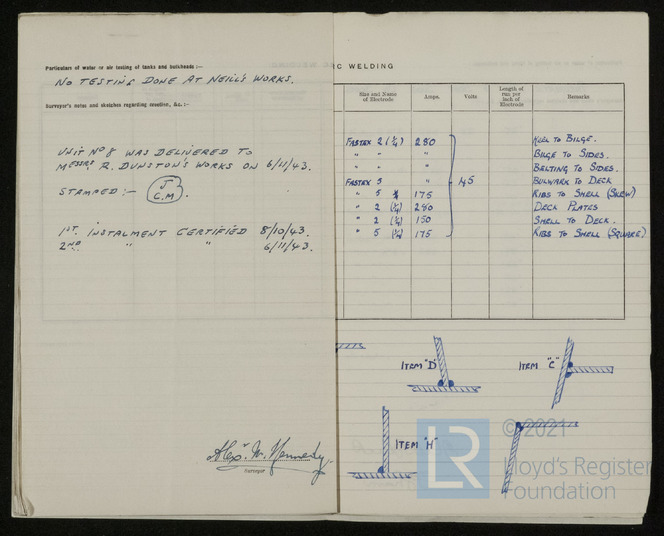 Particulars of water or air testing of tanks and bulkheads :—
NO TESTING DONE AT NEILL'S WORKS.
Surveyor's notes and sketches regarding erection, &c. :—
UNIT Nº 8 WAS DELIVERED TO
MESSRS R. DUNSTON'S WORKS ON 6/11/43.
STAMPED :— J C.M.
1ST. INSTALMENT CERTIFIED 8/10/43.
2ND " " 6/11/43.
Alexr. W. Kennedy.
Surveyor
IC WELDING
Size and Name of Electrode Amps. Volts Length of run per inch of Electrode Remarks
FASTEX 2 (¼) 280 KEEL TO BILGE.
" " " BILGE TO SIDES.
" " " BELTING TO SIDES.
FASTEX 5 " 45 BULWARK TO DECK
" 5 175 RIBS TO SHELL (SKEW)
" 2 (¼) 280 DECK PLATES
" 2 (¼) 150 SHELL TO DECK.
" 5 (¼) 175 RIBS TO SHELL (SQUARE)
ITEM "D"
ITEM "C"
ITEM "H"
LR
© 2021
Lloyd's Register
Foundation